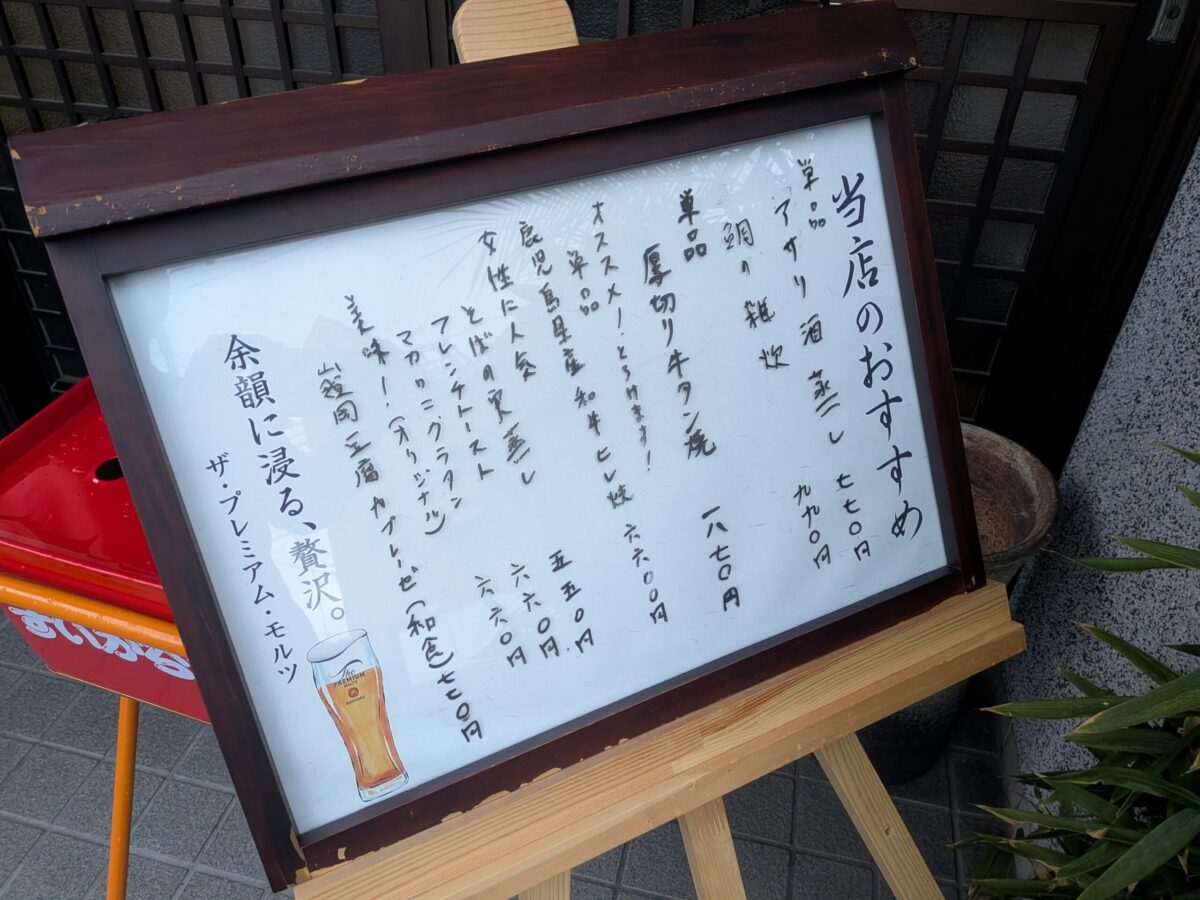 当店のおすすめ
単品 アサリ酒蒸し 七七〇円
鯛の雑炊 九九〇円
単品 厚切り牛タン焼 一八七〇円
オススメ！とろけます！
単品
鹿児島県産和牛ヒレ焼 六六〇〇円
女性に人気
とばの東蒸し 五五〇円
フレンチトースト 六六〇円
マカロニグラタン 六六〇円
美味！(オリジナル)
豆腐カプレーゼ(和食)七七〇円
余韻に浸る、贅沢。
ザ・プレミアム・モルツ
The PREMIUM MALT'S
SUNTORY
すいかる